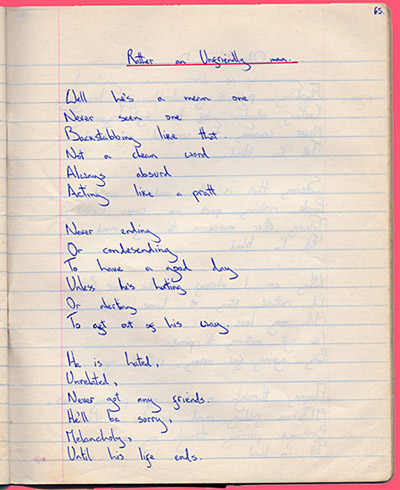 65.
Rather an Unfriendly man.
Well he's a mean one
Never seen one
Backstabbing like that.
Not a clean word
Always absurd
Acting like a pratt
Never ending
Or condesending
To have a good day
Unless he's hating
Or alerting
To get out of his way.
He is hated,
Unrelated,
Never got any friends.
He'll be sorry,
Melancholy,
Until his life ends.